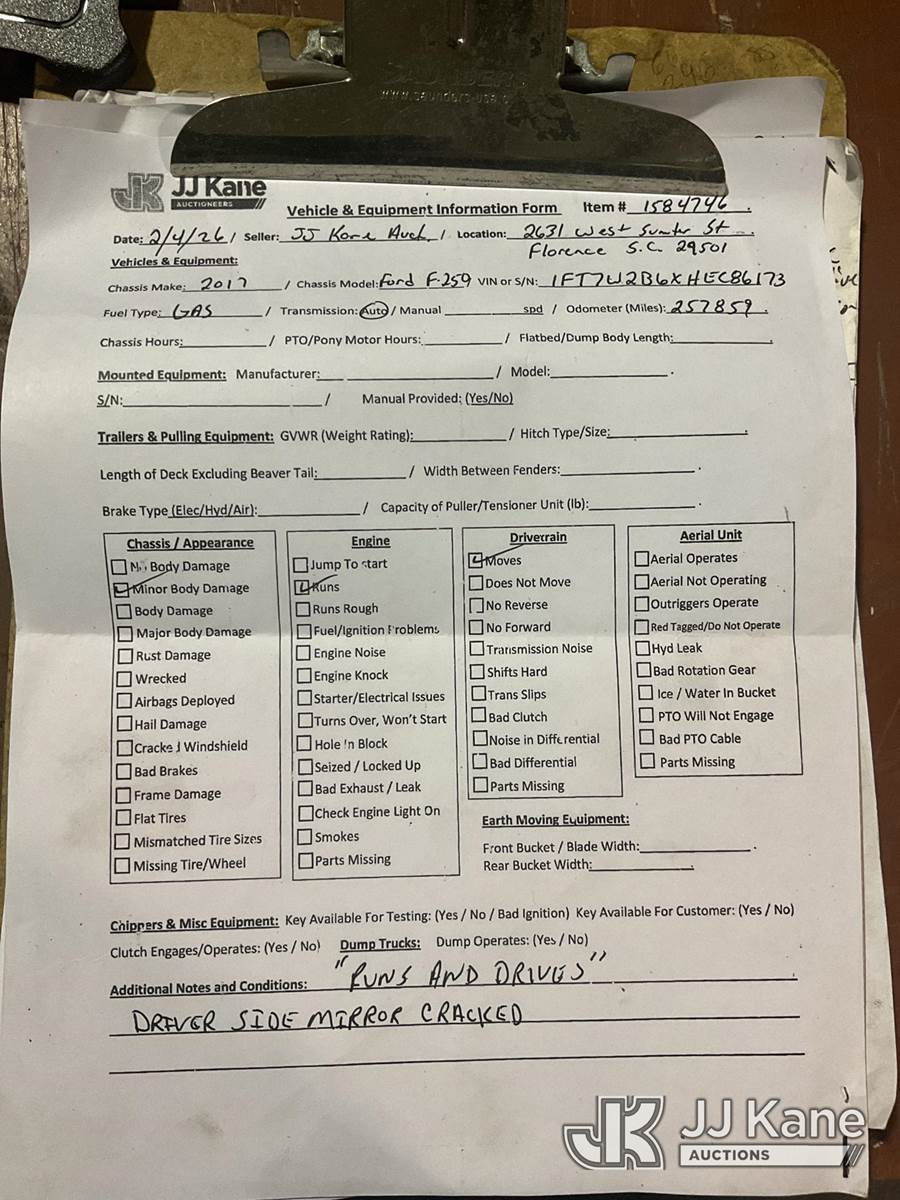 SAUNDERS
www.saunders-usa.c
JJ Kane
AUCTIONEERS
Vehicle & Equipment Information Form Item # 1584746.
Date: 2/4/26 / Seller: JJ Kane Auch / Location: 2631 West Sumter St
Florence S.C. 29501
Vehicles & Equipment:
Chassis Make: 2017 / Chassis Model: Ford F-250 VIN or S/N: 1FT7W2B6XHEC86173
Fuel Type: GAS / Transmission: Auto / Manual spd / Odometer (Miles): 257859.
Chassis Hours: / PTO/Pony Motor Hours: / Flatbed/Dump Body Length: .
Mounted Equipment: Manufacturer: / Model: .
S/N: / Manual Provided: (Yes/No)
Trailers & Pulling Equipment: GVWR (Weight Rating): / Hitch Type/Size: .
Length of Deck Excluding Beaver Tail: / Width Between Fenders: .
Brake Type (Elec/Hyd/Air): / Capacity of Puller/Tensioner Unit (lb): .
Chassis / Appearance
No Body Damage
Minor Body Damage
Body Damage
Major Body Damage
Rust Damage
Wrecked
Airbags Deployed
Hail Damage
Cracked Windshield
Bad Brakes
Frame Damage
Flat Tires
Mismatched Tire Sizes
Missing Tire/Wheel
Engine
Jump To start
Runs
Runs Rough
Fuel/Ignition Problems
Engine Noise
Engine Knock
Starter/Electrical Issues
Turns Over, Won't Start
Hole In Block
Seized / Locked Up
Bad Exhaust / Leak
Check Engine Light On
Smokes
Parts Missing
Drivetrain
Moves
Does Not Move
No Reverse
No Forward
Transmission Noise
Shifts Hard
Trans Slips
Bad Clutch
Noise in Differential
Bad Differential
Parts Missing
Aerial Unit
Aerial Operates
Aerial Not Operating
Outriggers Operate
Red Tagged/Do Not Operate
Hyd Leak
Bad Rotation Gear
Ice / Water In Bucket
PTO Will Not Engage
Bad PTO Cable
Parts Missing
Earth Moving Equipment:
Front Bucket / Blade Width: .
Rear Bucket Width: .
Chippers & Misc Equipment: Key Available For Testing: (Yes / No / Bad Ignition) Key Available For Customer: (Yes / No)
Clutch Engages/Operates: (Yes / No) Dump Trucks: Dump Operates: (Yes / No)
Additional Notes and Conditions: "RUNS AND DRIVES"
DRIVER SIDE MIRROR CRACKED
JJ Kane
AUCTIONS